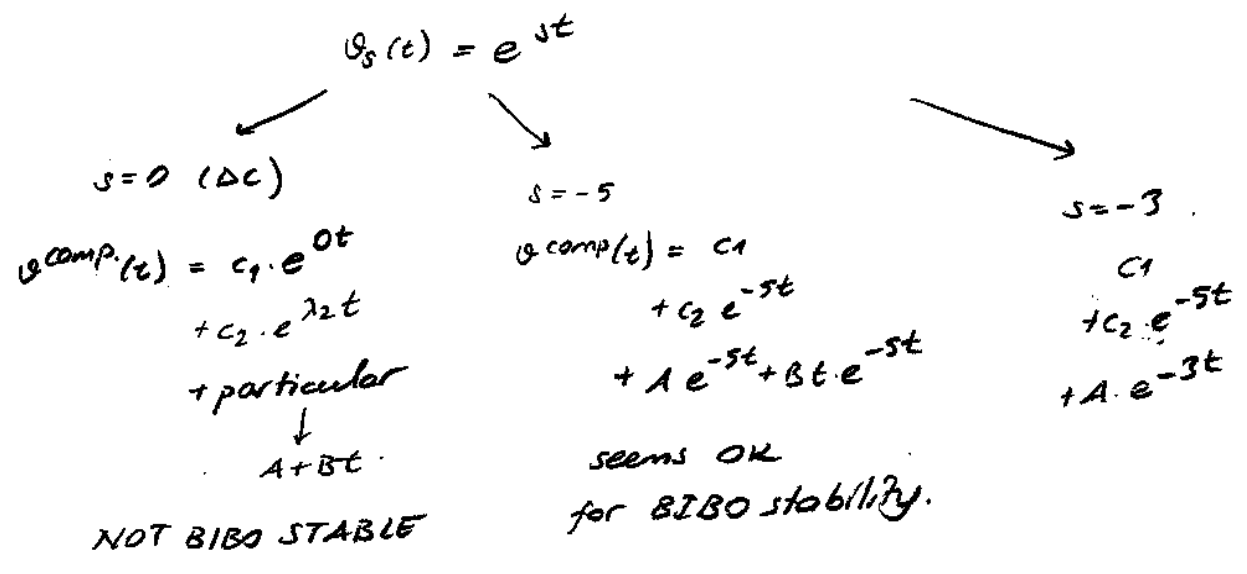 𝜗s(t) = e^st
s=0 (ΔC)
𝜗^comp.(t) = c₁·e^0t
+c₂·e^λ₂t
+particular
↓
A+Bt.
NOT BIBO STABLE
s=-5
𝜗^comp(t) = C1
+c₂ e^-5t
+ A e^-5t + Bt·e^-5t
seems OK
for BIBO stability.
s=-3.
C1
+c₂·e^-5t
+A·e^-3t